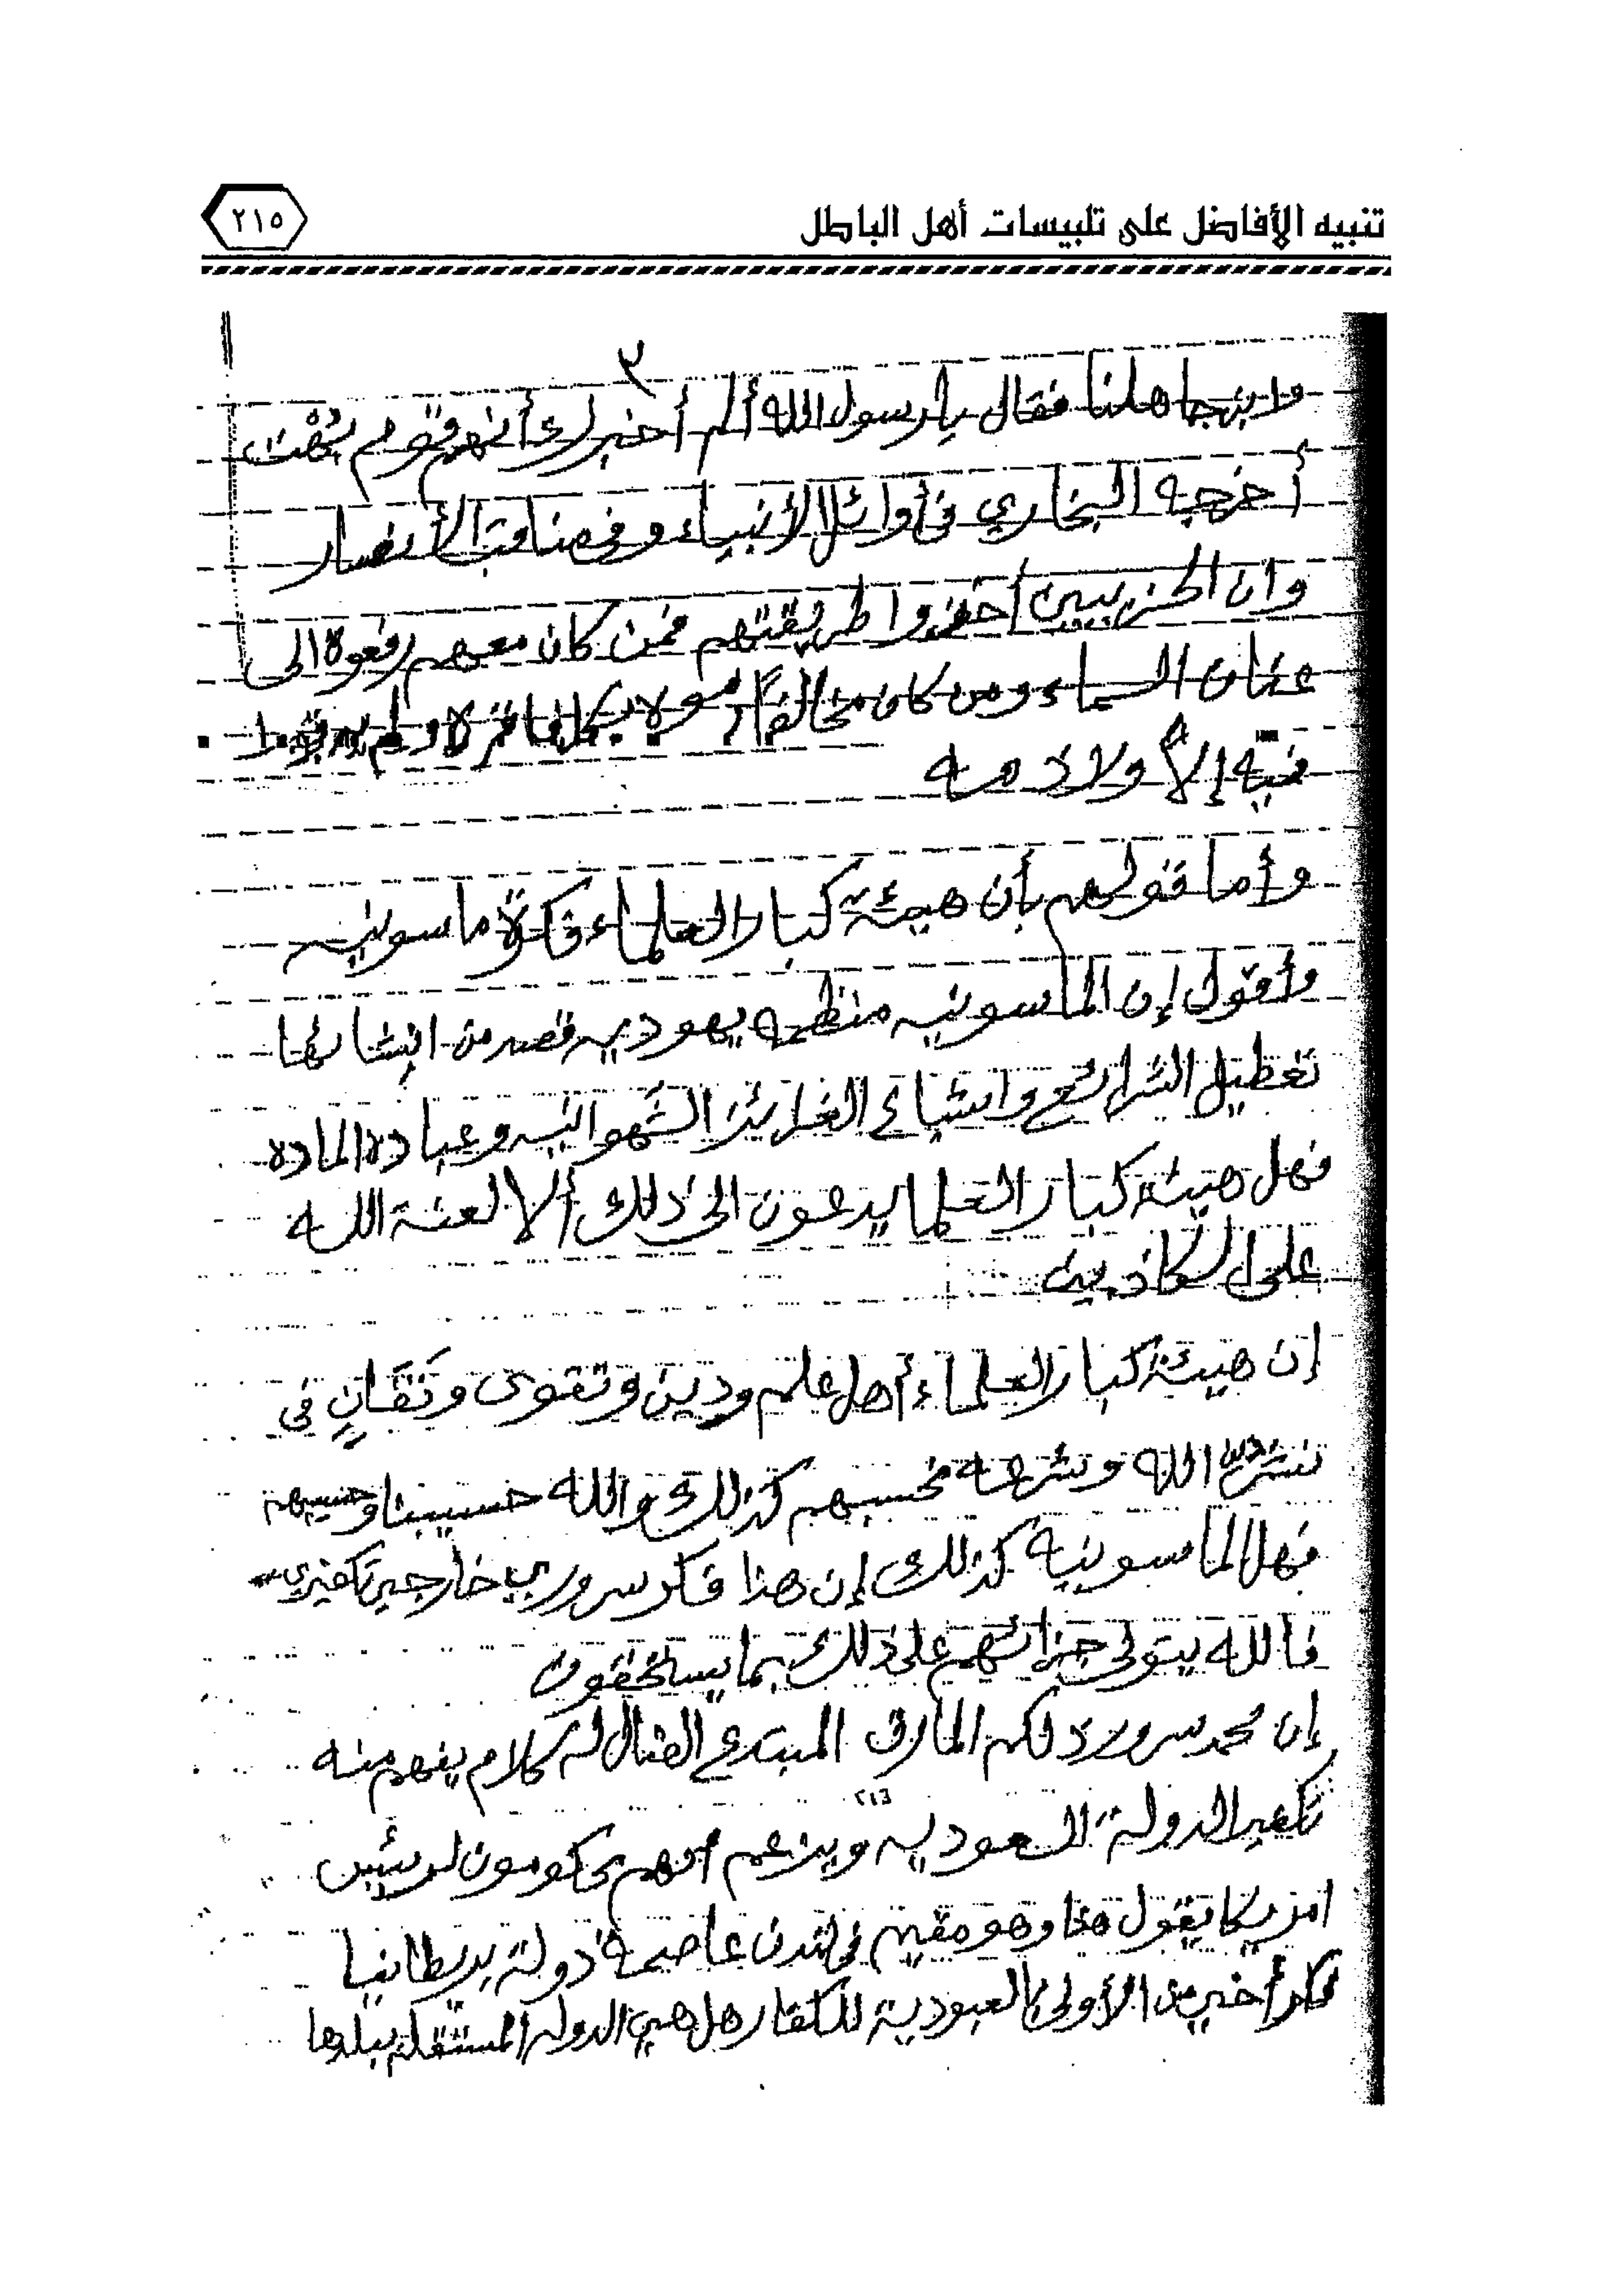 تنبيه الأفاضل على تلبيسات أهل الباطل
٢١٥
٣
وابن جاهلنا فقال يا رسول الله ألم أخبرك أنهم قوم بُهْت
أخرجه البخاري في أوائل الأنبياء وفي مناقب الأنصار
وان الحزبيين أخذوا طريقتهم فمن كان معهم رفعوه الى
عنان السماء ومن كان مخالفاً رموه بكل فاقرة ولم يرقبوا
فيه إلاًّ ولا ذمه
وأما قولهم بأن هيئة كبار العلماء فكرة ماسونيه
وأقول إن الماسونيه منظمه يهوديه قصد من انشائها
تعطيل الشرائع واشباع الغرائز الشهوانيه وعبادة الماده
فهل هيئة كبار العلما يدعون الى ذلك ألا لعنة الله
على الكاذبين
إن هيئة كبار العلماء أهل علم ودين وتقوى وتفانٍ في
نشر دين الله وشرعه نحسبهم كذلك والله حسيبنا وحسيبهم
فهل الماسونية كذلك إن هذا فكر سروري خارجي تكفيري
فالله يتولى جزائهم على ذلك بما يستحقون
إن محمد سرور ذلكم المارق المبتدع الضال له كلام يفهم منه
تكفير الدولة السعوديه ويزعم أنهم محكومون لرئيس
امريكا يقول هذا وهو مقيم في لندن عاصمة دولة بريطانيا
فكر أخبر من الأولى بالعبودية للكفار هل هي الدولة المستقلة ببلدها
٢١٣